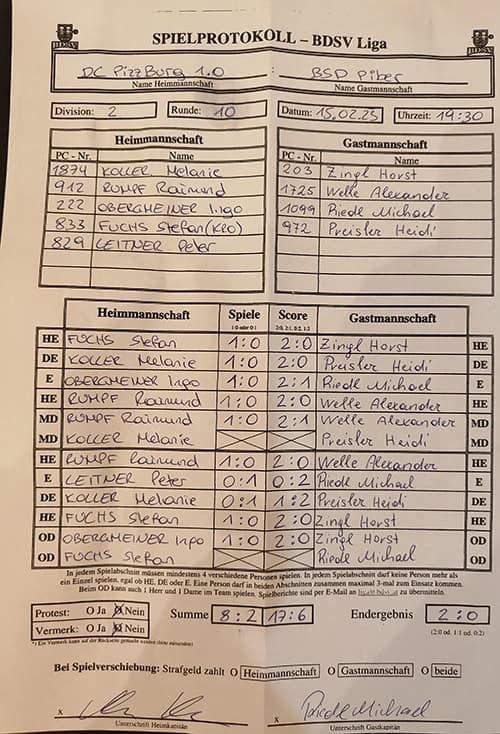 BDSV BDSV
SPIELPROTOKOLL – BDSV Liga
DC PizzBurg 1.0 : BSD Piber
Name Heimmannschaft Name Gastmannschaft
Division: 2 Runde: 10 Datum: 15.02.25 Uhrzeit: 19:30
Heimmannschaft Gastmannschaft
PC - Nr. Name PC - Nr. Name
1874 KOLLER Melanie 203 Zingl Horst
912 RUMPF Raimund 1725 Welle Alexander
222 OBERGMEINER Ingo 1099 Riedl Michael
833 FUCHS Stefan (KPO) 972 Preisler Heidi
829 LEITNER Peter
Heimmannschaft Spiele Score Gastmannschaft
1:0 oder 0:1 2:0, 2:1, 0:2, 1:2
HE FUCHS Stefan 1:0 2:0 Zingl Horst HE
DE KOLLER Melanie 1:0 2:0 Preisler Heidi DE
E OBERGMEINER Ingo 1:0 2:1 Riedl Michael E
HE RUMPF Raimund 1:0 2:0 Welle Alexander HE
MD RUMPF Raimund 1:0 2:1 Welle Alexander MD
MD KOLLER Melanie Preisler Heidi MD
HE RUMPF Raimund 1:0 2:0 Welle Alexander HE
E LEITNER Peter 0:1 0:2 Riedl Michael E
DE KOLLER Melanie 0:1 1:2 Preisler Heidi DE
HE FUCHS Stefan 1:0 2:0 Zingl Horst HE
OD OBERGMEINER Ingo 1:0 2:0 Zingl Horst OD
OD FUCHS Stefan Riedl Michael OD
In jedem Spielabschnitt müssen mindestens 4 verschiedene Personen spielen. In jedem Spielabschnitt darf keine Person mehr als
ein Einzel spielen, egal ob HE, DE oder E. Eine Person darf in beiden Abschnitten zusammen maximal 3-mal zum Einsatz kommen.
Beim OD kann auch 1 Herr und 1 Dame im Team spielen. Spielberichte sind per E-Mail an zu übermitteln.
Protest: O Ja O Nein Summe 8:2 17:6 Endergebnis 2:0
Vermerk: O Ja O Nein (2:0 od. 1:1 od. 0:2)
*) Ein Vermerk kann auf der Rückseite gemacht werden (bitte umseitig)
Bei Spielverschiebung: Strafgeld zahlt O Heimmannschaft O Gastmannschaft O beide
x x Riedl Michael
Unterschrift Heimkapitän Unterschrift Gastkapitän